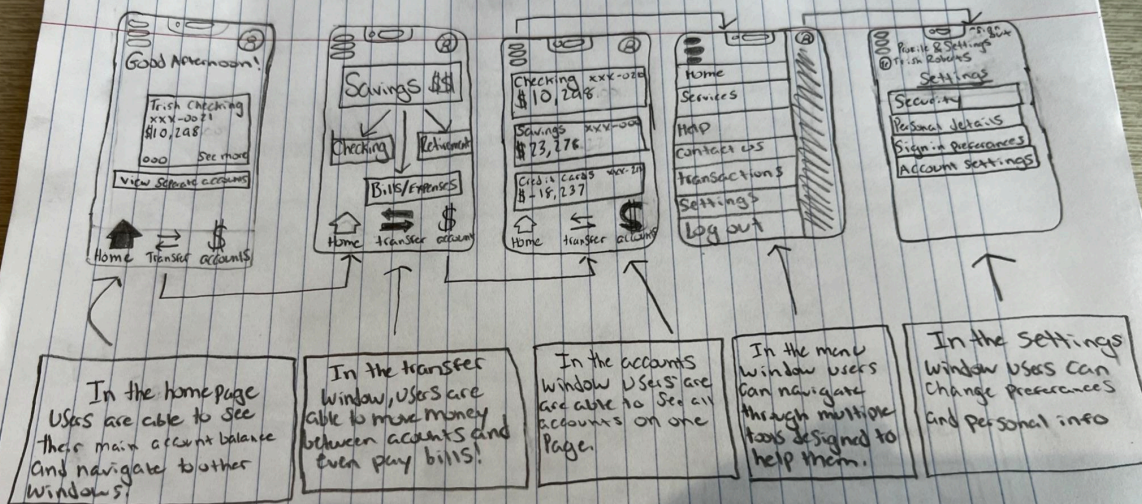 Good Afternoon!
Trish Checking
xxx-0021
$10,298
ooo See more
View Separate accounts
Home Transfer accounts
Savings $$
Checking
Retirement
Bills/Expenses
Home transfer account
Checking xxx-020
$10,298
Savings xxx-000
$23,276
Credit Cards
$-18,237
Home transfer accounts
Home
Services
Help
Contact us
Transactions
Settings
Log out
Sign out
Profile & Settings
Trish Roberts
Settings
Security
Personal details
Sign in preferences
Account Settings
In the homepage
users are able to see
their main account balance
and navigate to other
windows!
In the transfer
window, users are
able to move money
between acounts and
even pay bills!
In the accounts
window users are
are able to see all
accounts on one
Page.
In the menu
window users
can navigate
through multiple
tools designed to
help them.
In the Settings
window users can
change preferences
and personal info